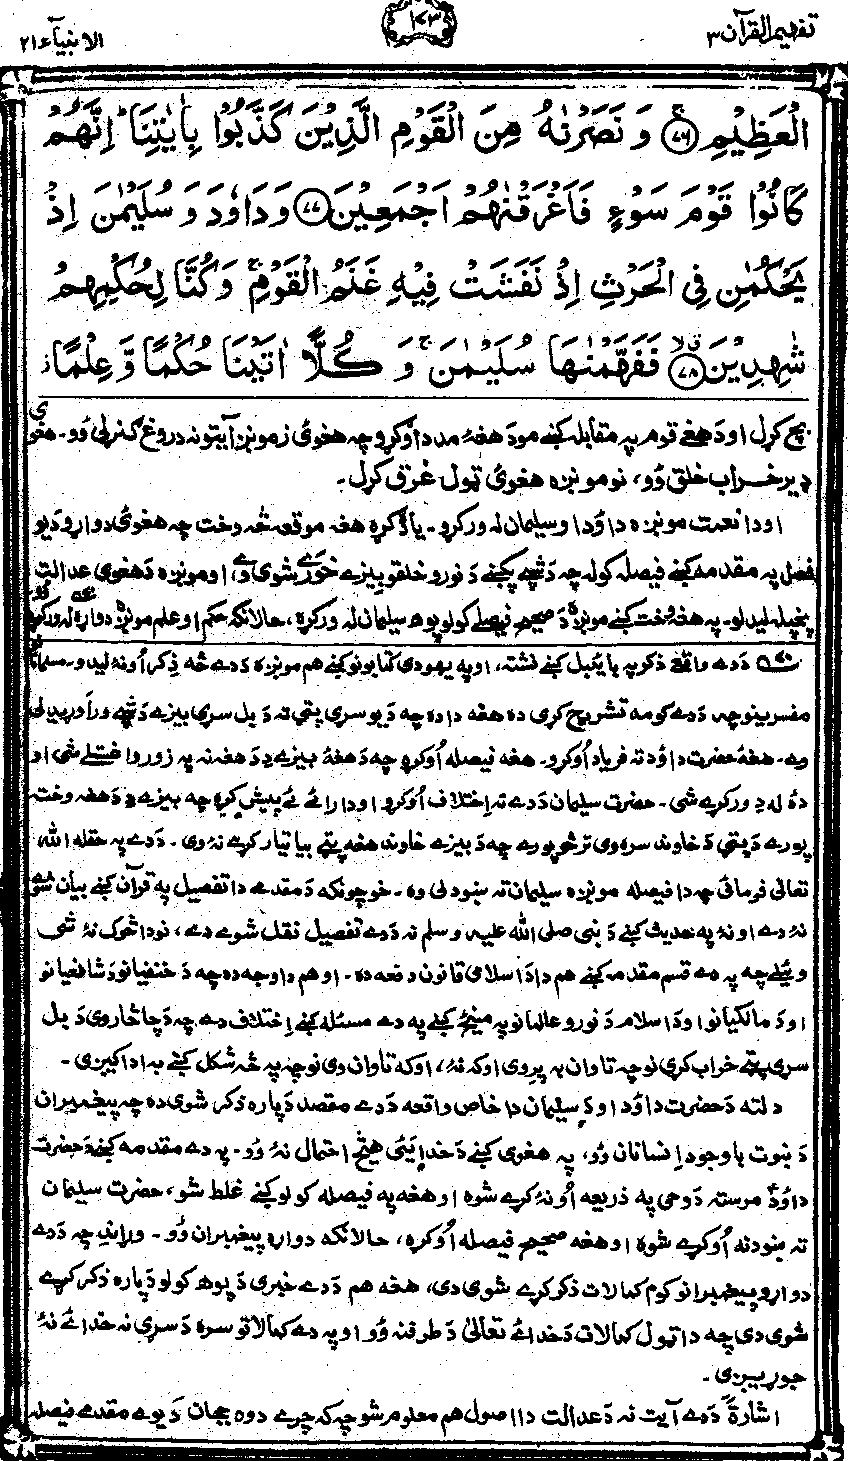 تفهيم القرآن ٣
١٧٣
الانبيآء ٢١
الْعَظِيْمِ ﴿٧٦﴾ۚ وَ نَصَرْنٰهُ مِنَ الْقَوْمِ الَّذِيْنَ كَذَّبُوْا بِاٰيٰتِنَا ؕ اِنَّهُمْ
كَانُوْا قَوْمَ سَوْءٍ فَاَغْرَقْنٰهُمْ اَجْمَعِيْنَ ﴿٧٧﴾ وَ دَاوٗدَ وَ سُلَيْمٰنَ اِذْ
يَحْكُمٰنِ فِي الْحَرْثِ اِذْ نَفَشَتْ فِيْهِ غَنَمُ الْقَوْمِ ۚ وَ كُنَّا لِحُكْمِهِمْ
شٰهِدِيْنَ ﴿٧٨﴾ۙ فَفَهَّمْنٰهَا سُلَيْمٰنَ ۚ وَ كُلًّا اٰتَيْنَا حُكْمًا وَّ عِلْمًا ز
بچ کړل او دَ هغے قوم په مقابله کښے مو دَ هغهٔ مدد اوکړو چه هغوئ زمونږ آيتونه دروغ ګنړلى وو۔ هغوى
ډير خراب خلق وُو، نو مونږه هغوئ ټول غرق کړل۔
او دا نعمت مونږه داؤد او سليمان له ورکړو۔ ياد کړه هغه موقعه څهٔ وخت چه هغوئ دواړو دَ يو
فصل په مقدمه کښے فيصله کوله چه دَ شپے پکښے دَ نورو خلقو بيزے خورے شوى وے، او مونږه دَ هغوى عدالت
پخپله ليدلو۔ په هغه وخت کښے مونږه دَ صحيح فيصلے کولو پوهه سليمان له ورکړه، حالانکه حکم او علم مونږه دواړه له ورکړى
دَ دے واقعے ذکر په بائيبل کښے نشته، او په يهودى کتابونو کښے هم مونږه دَ دے څهٔ ذکر اُونهٔ ليدو۔ مسلمانو
مفسرينو چه دَ دے کومه تشريح کړى ده هغه دا ده چه دَ يو سړى پټى ته دَ بل سړى بيزے دَ شپے ورآوړيدلى
وے۔ هغهٔ حضرت داؤد ته فرياد اُوکړو۔ هغه فيصله اُوکړه چه دَ هغهٔ بيزے دِ دَ هغه نه په زور واخستلے شى او
دهٔ له دِ ورکړے شى۔ حضرت سليمان دَ دے نه اِختلاف اُوکړو او دا رائے ئے پيش کړه چه بيزے دِ دَ هغه وخته
پورے دَ پټى دَ خاوند سره وى ترڅو پورے چه دَ بيزے خاوند هغه پټے بيا تيار کړے نهٔ وى۔ دَ دے په حقله الله
تعالىٰ فرمائى چه دا فيصله مونږه سليمان ته ښودلى وه۔ خو چونکه دَ مقدمے دا تفصيل په قرآن کښے بيان شوے
نهٔ دے او نهٔ په حديث کښے دَ نبى صلى الله عليه وسلم نه دَ دے تفصيل نقل شوے دے، نو دا څوک نهٔ شى
وئيلے چه په دے قسم مقدمه کښے هم دا دَ اسلامى قانون دفعه ده۔ او هم دا وجه ده چه دَ حنفيانو دَ شافعيانو
او دَ مالکيانو او دَ اسلام دَ نورو عالمانو په مينځ کښے په دے مسئله کښے اِختلاف دے چه دَ چا څاروى دَ بل
سړى پټے خراب کړى نو چه تاوان به پرِ وى او که نهٔ، او که تاوان وى نو چه په څهٔ شکل کښے به ادا کيږى۔
دلته دَ حضرت داؤد او دَ سليمان دا خاص واقعه دَ دے مقصد دَ پاره ذکر شوى ده چه پيغمبران
دَ نبوت باوجود اِنسانان وُو، په هغوى کښے دَ خدايئى هيڅ احتمال نهٔ وُو۔ په دے مقدمه کښے دَ حضرت
داؤد مرسته دَ وحى په ذريعه اُونهٔ کړے شوه او هغه په فيصله کولو کښے غلط شو، حضرت سليمان
ته ښودنه اُوکړے شوه او هغه صحيح فيصله اُوکړه، حالانکه دواړه پيغمبران وُو۔ وړاندے چه دَ دے
دواړو پيغمبرانو کوم کمالات ذکر کړے شوى دى، هغه هم دَ دے خبرى دَ پوهه کولو دَ پاره ذکر کړے
شوى دى چه دا ټول کمالات دَ خدائے تعالىٰ دَ طرفنه وُو او په دے کمالاتو سره دَ سړى نه خدائے نهٔ
جوړيږى۔
اشارةً دَ دے آيت نه دَ عدالت دا اصول هم معلوم شو چه که چرے دوه ججان دَ يوے مقدمے فيصله